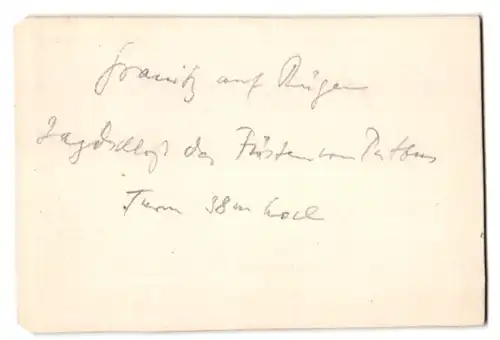 Granitz auf Rügen
Jagdschloss des Fürsten von Putbus
Turm 38 m hoch